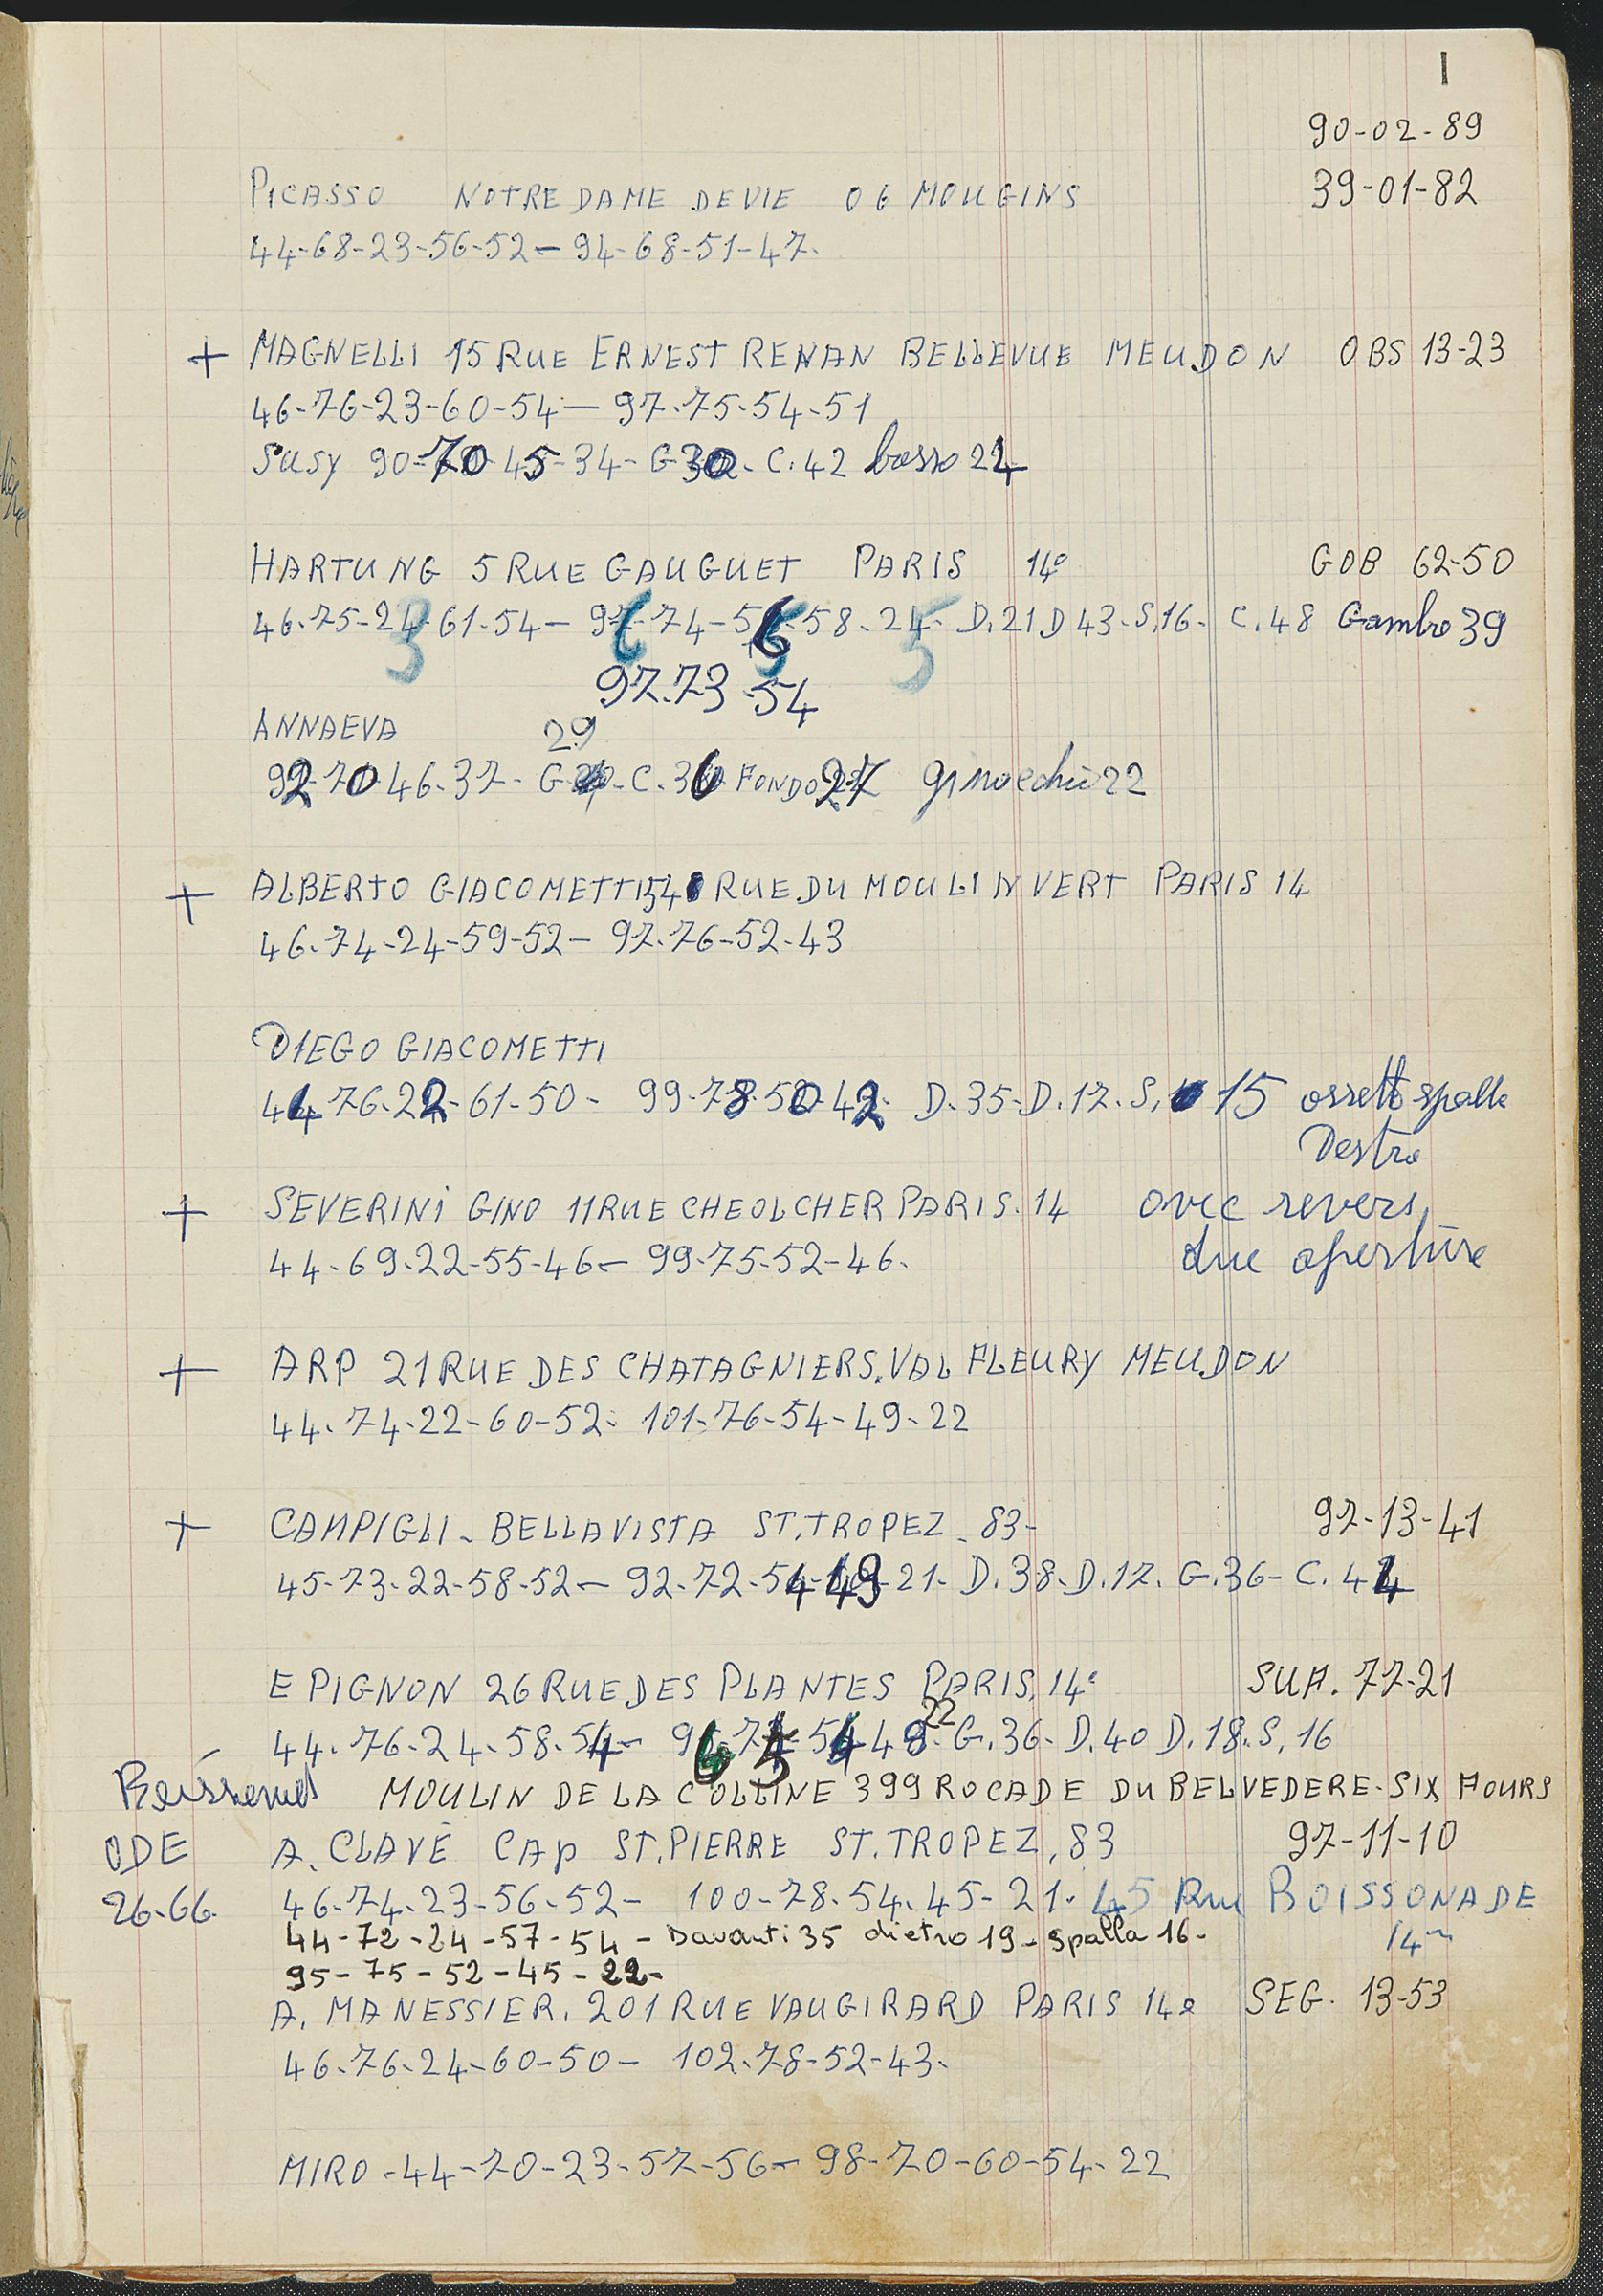 I
90-02-89
PICASSO NOTRE DAME DE VIE 06 MOUGINS 39-01-82
44-68-23-56-52- 94-68-51-47-
+ MAGNELLI 15 RUE ERNEST RENAN BELLEVUE MEUDON OBS 13-23
46-76-23-60-54- 97-75-54-51
SUSY 90-70 45-34- G 30. C. 42 basso 24
HARTUNG 5 RUE GAUGUET PARIS 14e GOB 62-50
46-75-23 61-54- 96-74-56-58-25 D.21 D 43-S.16- C.48 Gambe 39
97.73.54
ANNAEVA 29
92 70 46-37- G. C. 36 FONDO 27 ginocchio 22
+ ALBERTO GIACOMETTI 54 RUE DU MOULIN VERT PARIS 14
46-74-24-59-52- 97-76-52-43
DIEGO GIACOMETTI
44 76-22-61-50- 99-78-50-42- D-35-D.17.S. 15 ossetto spalle
Destra
+ SEVERINI GINO 11 RUE CHEOLCHER PARIS. 14 avec revers
44-69-22-55-46- 99-75-52-46. due aperture
+ ARP 21 RUE DES CHATAGNIERS. VAL FLEURY MEUDON
44-74-22-60-52- 101-76-54-49-22
+ CAMPIGLI - BELLAVISTA ST.TROPEZ - 83- 97-13-41
45-73-22-58-52- 92-72-54-49-21- D.38-D.17. G.36- C. 44
E PIGNON 26 RUE DES PLANTES PARIS, 14e SUF. 77-21
22
44-76-24-58-54- 96-75-54 48- G.36- D.40 D.18.S.16
MOULIN DE LA COLLINE 399 ROCADE DU BELVEDERE - SIX FOURS
ODE A. CLAVÉ CAP ST.PIERRE ST.TROPEZ, 83 97-11-10
26-66. 46-74-23-56-52- 100-78-54-45-21- 45 Rue BOISSONADE
44-72-24-57-54- Davanti 35 dietro 19- spalla 16- 14m
95-75-52-45-22-
A. MANESSIER. 201 RUE VAUGIRARD PARIS 14e SEG. 13-53
46-76-24-60-50- 102-78-52-43-
MIRO -44-70-23-57-56- 98-70-60-54-22